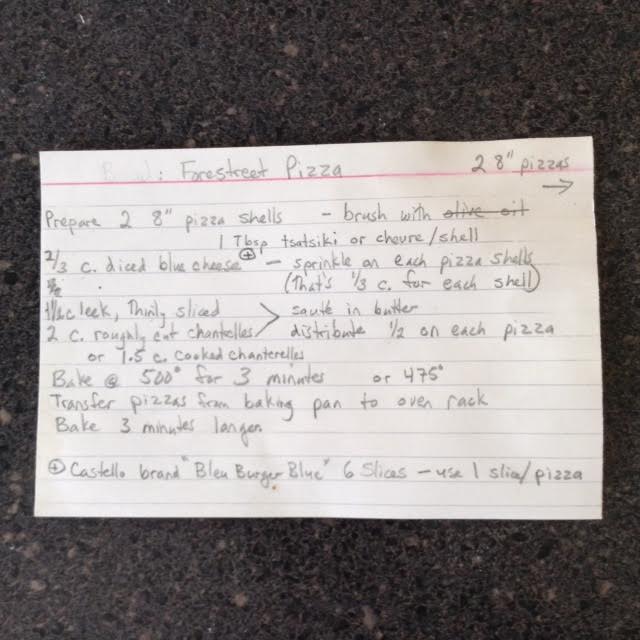 : Forestreet Pizza 2 8" pizzas →
Prepare 2 8" pizza shells - brush with olive oil
1 Tbsp tsatsiki or chevre/shell
2/3 c. diced blue cheese ⊕ - sprinkle on each pizza shells
1/2 (That's 1/3 c. for each shell)
leek, Thinly sliced > saute in butter
2 c. roughly cut chantelles distribute 1/2 on each pizza
or 1.5 c. cooked chanterelles
Bake @ 500° for 3 minutes or 475°
Transfer pizzas from baking pan to oven rack
Bake 3 minutes longer
⊕ Castello brand "Bleu Burger Blue" 6 Slices - use 1 slice/pizza